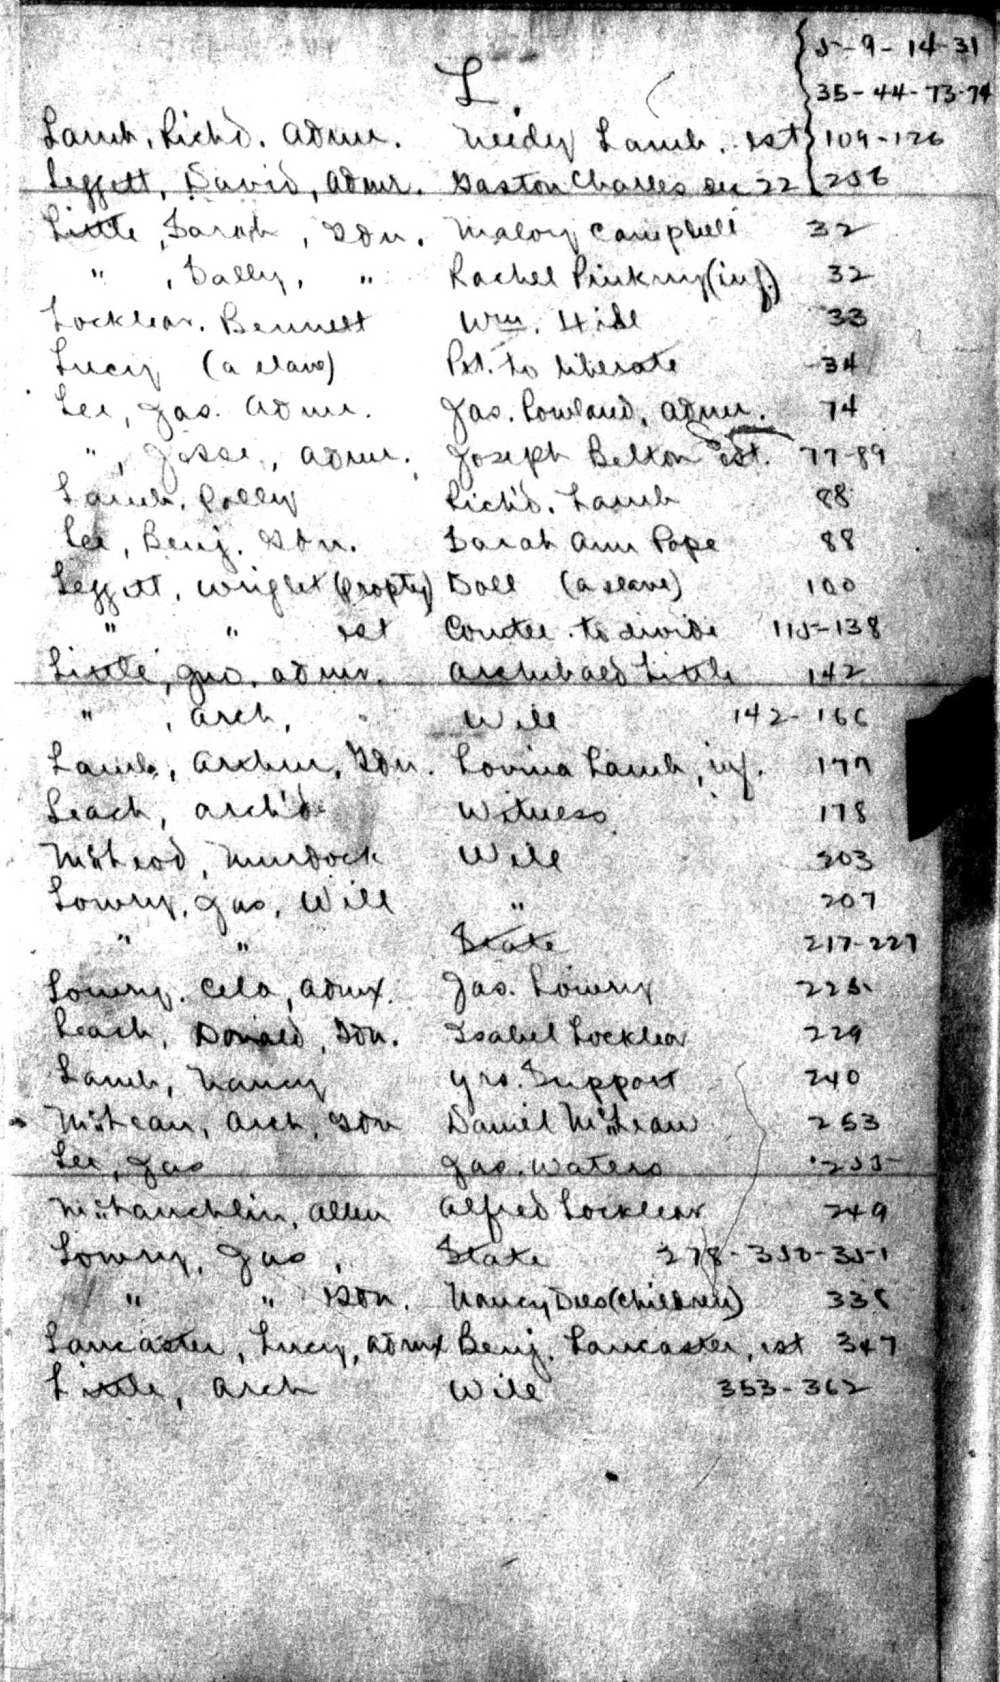 5-9-14-31
L. 35-44-73-74
Lamb, Rich'd. Admr. Needy Lamb. est 109-126
Leggett, David, Admr. Gaston Charles dec 22 256
Little, Sarah, Gdn. Maloy Campbell 32
" , Sally, " Rachel Pinkney (inf.) 32
Locklear. Bennett Wm. Hill 33
Lucy (a slave) Pet. to liberate 34
Lee, Jas. Admr. Jas. Rowland, Admr. 74
" , Jesse, Admr. Joseph Belton est. 77-89
Lamb. Polly Rich'd. Lamb 88
Lee, Benj. Gdn. Sarah Ann Pope 88
Leggett, Wright (Propty) Doll (a slave) 100
" " est Comtee. to divide 115-138
Little, Jno. Admr. Archibald Little 142
" , Arch, Will 142-166
Lamb, Arthur, Gdn. Lovina Lamb, inf. 177
Leach, Arch'd Witness 178
McLeod, Murdock Will 203
Lowry, Jas, Will " 207
" " State 217-227
Lowry. Cela, Admx. Jas. Lowry 225
Leach, Donald, Gdn. Isabel Locklear 229
Lamb, Nancy Yrs. Support 240
McLean, Arch, Gdn Daniel McLean 253
Lee, Jas Jas. Waters 255
McLauchlin, Allen Alfred Locklear 249
Lowry, Jas, State 278-350-351
" " Gdn. Nancy Dees (Children) 338
Lancaster, Lucy, Admx Benj. Lancaster, est 347
Little, Arch Will 353-362